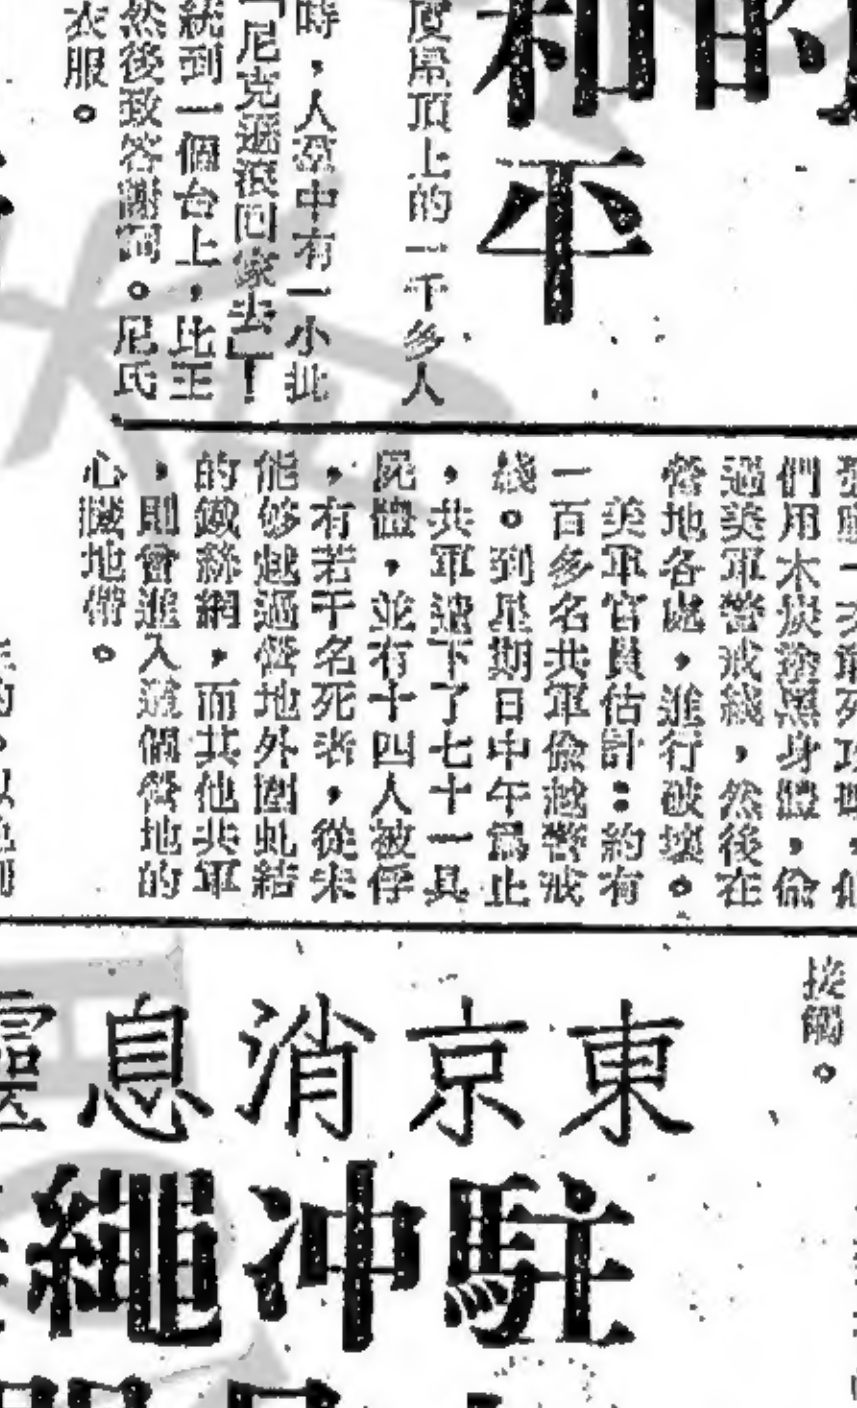 的
和平
度吊頂上的一千多人
時，人羣中有一小批
「尼克遜滾回家去」！
統到一個台上，比王
然後致答謝詞。尼氏
衣服。
們用木炭塗黑身體，偷
過美軍警戒綫，然後在
營地各處，進行破壞。
美軍官員估計：約有
一百多名共軍偷越警戒
綫。到星期日中午爲止
，共軍遺下了七十一具
屍體，並有十四人被俘
，有若干名死者，從未
能够越過營地外圍虬結
的鐵絲網，而其他共軍
，則曾進入這個營地的
心臟地帶。
接觸。
東京消息
駐沖繩